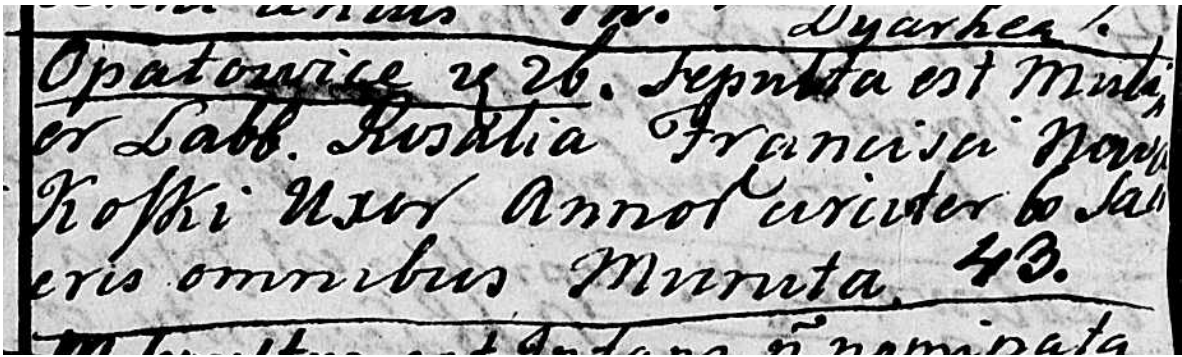 Dyarhea.
Opatowice 26. Sepulta est Muli,
er Labb. Rosalia Francisci Nowa
Koſki Uxor Annor circiter 60 Sa
cris omnibus Munita. 43.
est Infans ñ nominata